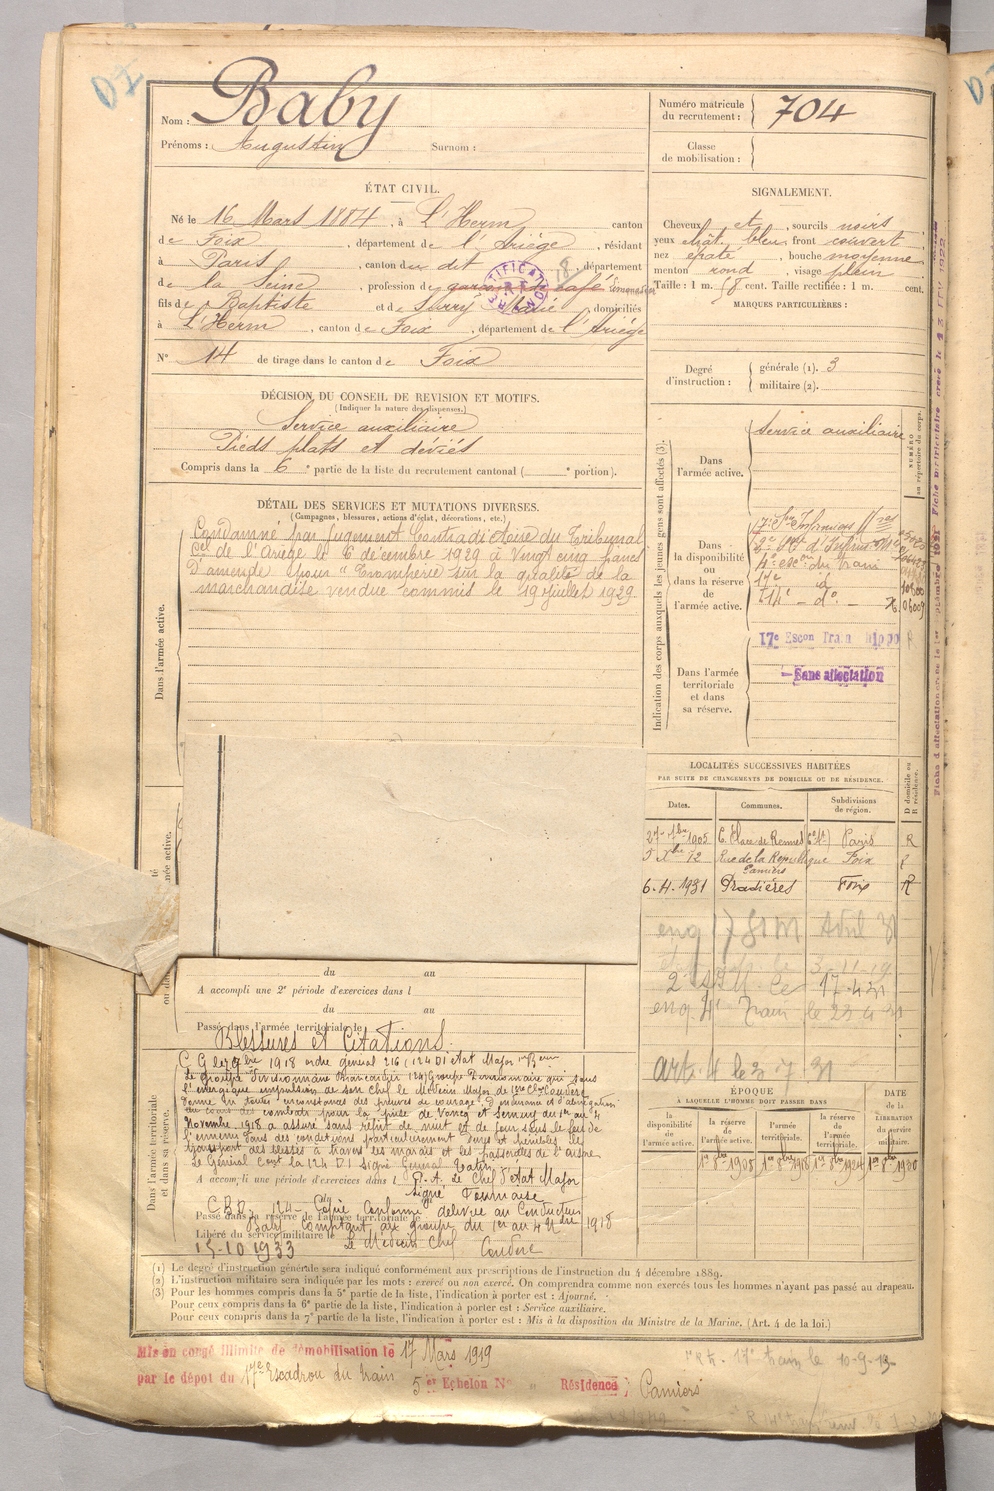 Nom : Baby
Prénoms : Augustin Surnom :
Numéro matricule du recrutement : 704
Classe de mobilisation :
ÉTAT CIVIL.
Né le 16 Mars 1884, à L'Herm canton
de Foix, département de l'Ariège, résidant
à Paris, canton du dit, département
de la Seine, profession de garçon de café
fils de Baptiste et de Marie, domiciliés
à L'Herm, canton de Foix, département de l'Ariège
N° 14 de tirage dans le canton de Foix
SIGNALEMENT.
Cheveux et, sourcils noirs
yeux chât. bleu front couvert
nez épaté, bouche moyenne
menton rond, visage plein
Taille : 1 m. cent. Taille rectifiée : 1 m. cent.
MARQUES PARTICULIÈRES :
Degré d'instruction : générale (1). 3
militaire (2).
DÉCISION DU CONSEIL DE REVISION ET MOTIFS.
(Indiquer la nature des dispenses.)
Service auxiliaire
Pieds plats et déviés
Compris dans la 6e partie de la liste du recrutement cantonal ( e portion).
DÉTAIL DES SERVICES ET MUTATIONS DIVERSES.
(Campagnes, blessures, actions d'éclat, décorations, etc.)
Condamné par jugement Contradictoire du Tribunal
Cel de l'Ariège le 6 décembre 1929 à Vingt cinq francs
D'amende pour "Tromperie sur la qualité de la
marchandise vendue commis le 19 Juillet 1929
Dans l'armée active.
Indication des corps auxquels les jeunes gens sont affectés (3).
NUMÉRO au répertoire du corps.
Dans l'armée active.
Service auxiliaire
Dans la disponibilité ou dans la réserve de l'armée active.
4e escon du train
17e d°
14e d°
17e Escon Train hippo R
Sans affectation
Dans l'armée territoriale et dans sa réserve.
LOCALITÉS SUCCESSIVES HABITÉES
PAR SUITE DE CHANGEMENTS DE DOMICILE OU DE RÉSIDENCE.
Dates. Communes. Subdivisions de région. D domicile ou R résidence.
27 7bre 1905 6, Place de Rennes (6e Art) Paris R
5 Xbre 12 Rue de la République Foix
Pamiers
6.4.1931 Pradières Foix R
17-4-31
Train le 23 4 31
art. 4 le 3 7 31
du au
A accompli une 2e période d'exercices dans l
du au
Passé dans l'armée territoriale le
Blessures et Citations.
1918 ordre général 216 (124 DI Etat Major
Le groupe Divisionnaire Brancardier 124 Groupe Divisionnaire qui sous
l'énergique impulsion de son chef le Médecin Major de 1ère Cl. Coudere
donne en toutes circonstances des preuves de courage d'endurance et d'abnégation
au cours des combats pour la prise de Voncq et Semuy du 1er au 4
Novembre 1918 a assuré sans répit de nuit et de jour sous le feu de
l'ennemi dans des conditions particulièrement dures et pénibles le
transport des blessés à travers les marais et les passerelles de l'Aisne
Le Général Cont la 124 DI Signé General
A accompli une période d'exercices dans l P.A. Le Chef d'Etat Major
Signé
Copie Conforme délivrée au Conducteur
Passé dans la réserve de l'armée territoriale le
Baby Comptant au groupe du 1er au 4 Nbre 1918
Libéré du service militaire le Le Médecin Chef Coudere
15-10 1933
Dans l'armée territoriale et dans sa réserve.
ÉPOQUE
À LAQUELLE L'HOMME DOIT PASSER DANS
la disponibilité de l'armée active. la réserve de l'armée active. l'armée territoriale. la réserve de l'armée territoriale. DATE de la LIBÉRATION du service militaire.
1er 8bre 1905 1er 8bre 1918 1er 8bre 1924 1er 8bre 1930
(1) Le degré d'instruction générale sera indiqué conformément aux prescriptions de l'instruction du 4 décembre 1889.
(2) L'instruction militaire sera indiquée par les mots : exercé ou non exercé. On comprendra comme non exercés tous les hommes n'ayant pas passé au drapeau.
(3) Pour les hommes compris dans la 5e partie de la liste, l'indication à porter est : Ajourné.
Pour ceux compris dans la 6e partie de la liste, l'indication à porter est : Service auxiliaire.
Pour ceux compris dans la 7e partie de la liste, l'indication à porter est : Mis à la disposition du Ministre de la Marine. (Art. 4 de la loi.)
Mis en congé illimité de démobilisation le 17 Mars 1919
par le dépot du 17e Escadron du train
5e Echelon N° " Résidence) Pamiers
17e train le 10-9-13